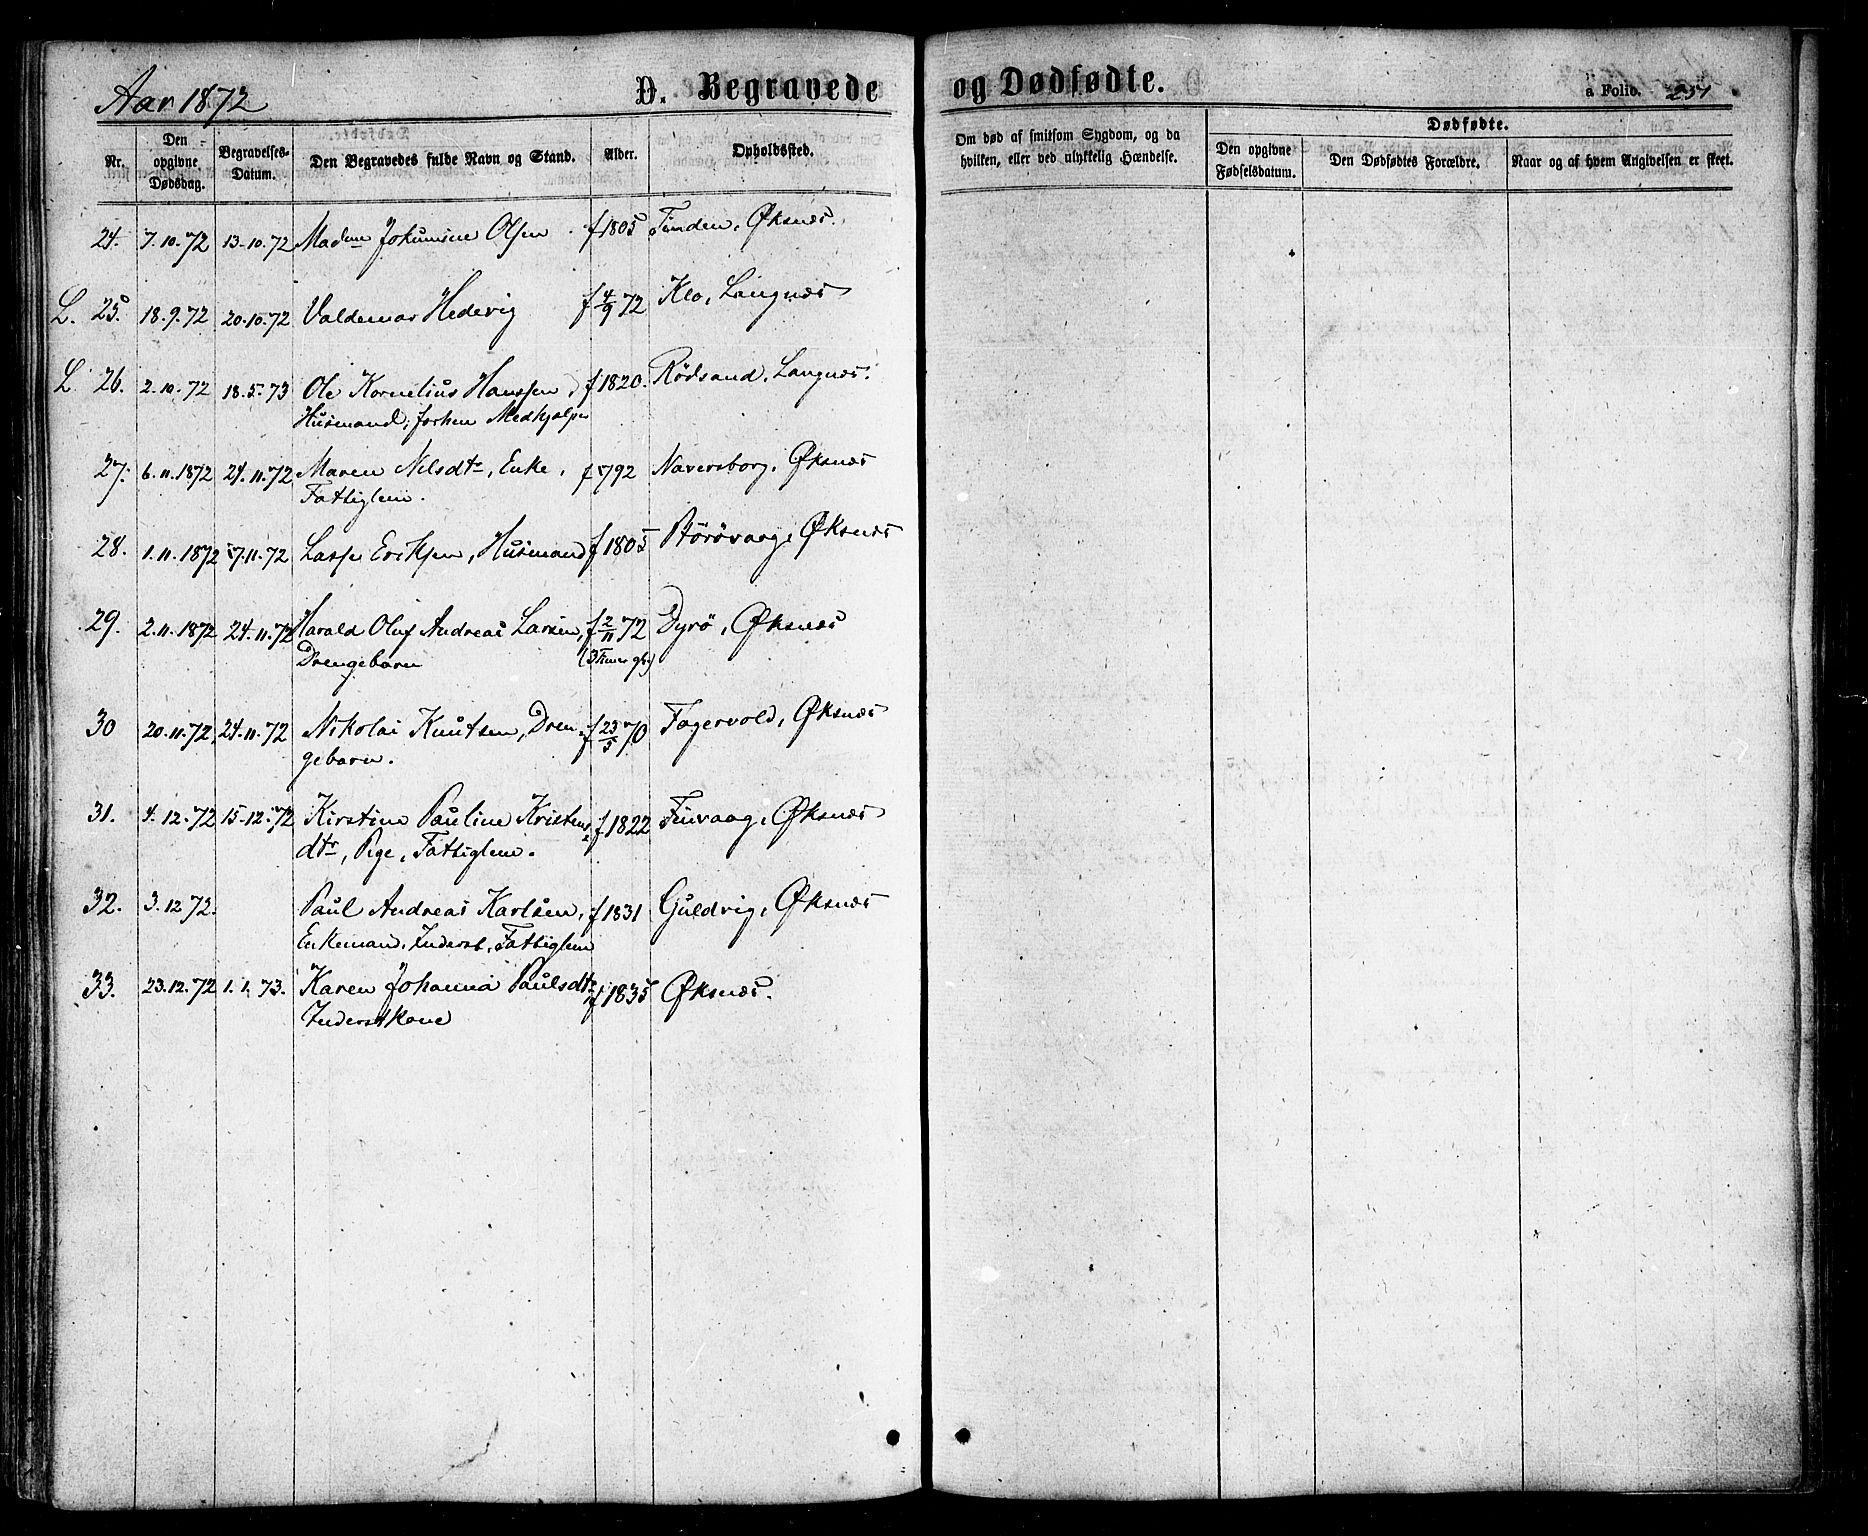 Aar 1872 D. Begravede og Dødfødte. a Folio. 251
Nr. Den opgivne Dødsdag. Begravelses-Datum. Den Begravedes fulde Navn og Stand. Alder. Opholdssted. Om død af smitsom Sygdom, og da hvilken, eller ved ulykkelig Hændelse. Dødfødte. Den opgivne Fødselsdatum. Den Dødfødtes Forældre. Naar og af hvem Angivelsen er skeet.
24. 7.10.72 13.10.72 Madm Olsen f 1805 Tinden, Øksnæs.
L. 25. 18.9.72 20.10.72 Valdemar Hedevig f 4/9 72 Klo, Langnæs
L 26. 2.10.72 18.5.73 Ole Kornelius Hanssen, f 1820. Rødsand, Langnæs.
Husmand, forhen Medhjælper
27. 6.11.1872 24.11.72 Maren Nilsdtr, Enke, f 792 Naversborg, Øksnæs
Fattiglem.
28. 1.11.1872 7.11.72 Lasse Erikssen, Husmand f 1805 Størøvaag, Øksnæs
29. 2.11.1872 24.11.72 Harald Oluf Andreas Larsen, f 2/11 72 Dyrø, Øksnæs
Drengebarn (3 Timer gl.)
30 20.11.72, 24.11.72 Nikolai Knutsen, Dren- f 23/5 70 Fagervold, Øksnæs
gebarn.
31. 4.12.72 15.12.72 Kirstine Pauline Kristens- f 1822 Finvaag, Øksnæs
dtr, Pige, Fattiglem.
32. 3.12 72. Paul Andreas Karlsen, f 1831 Guldvig, Øksnæs
Enkemand, Inderst, Fattiglem
33. 23.12.72 1.1.73. Karen Johanna Paulsdtr f 1835 Øksnæs.
Inderstkone